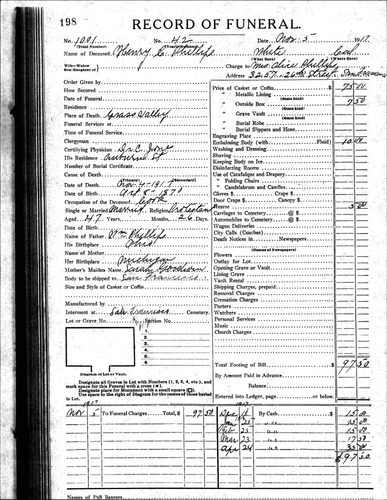 198
RECORD OF FUNERAL.
No. 1001 No. 42 Date, Nov. 5 1917
(Total Number) (Yearly Number)
Name of Deceased, Henry C. Phillips White Cal
(What Race) (Where Born)
Wife—Widow
Son—Daughter of
Charge to Mrs. Phillips
Address 3257-26th Street
Order Given by
How Secured
Date of Funeral
Residence
Place of Death Grass Valley
Funeral Services at
Time of Funeral Service
Clergyman
Certifying Physician Dr. C.
His Residence
Number of Burial Certificate
Cause of Death
Date of Death Nov. 4-1917
Occupation of the Deceased
Single or Married Married Religion
Aged 47 Years, Months, 26 Days
Date of Birth
Name of Father Wm Phillips
His Birthplace Ohio
Name of Mother
Her Birthplace Michigan
Mother's Maiden Name
Body to be shipped to San Francisco
Size and Style of Casket or Coffin
Manufactured by
Interment at San Francisco Cemetery
Lot or Grave No. Section No.
1
2
3
4
5
6
7
Diagram of Lot or Vault.
Designate all Graves in Lot with Numbers (1, 2, 3, 4, etc.), and
mark space for this Funeral with a cross (+).
Designate place for Monument with a small square (□).
Use space to the right of Diagram for the names of those
buried in Lot or Vault.
Price of Casket or Coffin 75.00
" Metallic Lining
(State kind)
" Outside Box 7.50
(State kind)
" Grave Vault
(State kind)
" Burial Robe
" Burial Slippers and Hose
Engraving Plate
Embalming Body (with Fluid) 10.00
Washing and Dressing
Shaving
Keeping Body on Ice
Disinfecting Rooms
Use of Catafalque and Drapery
" Folding Chairs
" Candelabrum and Candles
Gloves $ Crape $
Door Crape $ Canopy $
Hearse 5.00
Carriages to Cemetery @ $
Automobiles to Cemetery @ $
Wagon Deliveries
City Calls (Coaches)
Death Notices in Newspapers
(Names of Newspapers)
Flowers
Outlay for Lot
Opening Grave or Vault
Lining Grave
Vault Rental
Shipping Charges, prepaid
Removal Charges
Cremation Charges
Porters
Watchers
Personal Services
Music
Church Charges
Total Footing of Bill $97.50
By Amount Paid in Advance
Balance
Entered into Ledger, page
1917
Nov 5 To Funeral Charges, Total, $97.50
By Cash 15.00
Jan 23 " " 15.00
Feb 23 " " 15.00
Mar 23 " " 17.50
Apr 24 " " 35.00
$97.50
Names of Pall Bearers